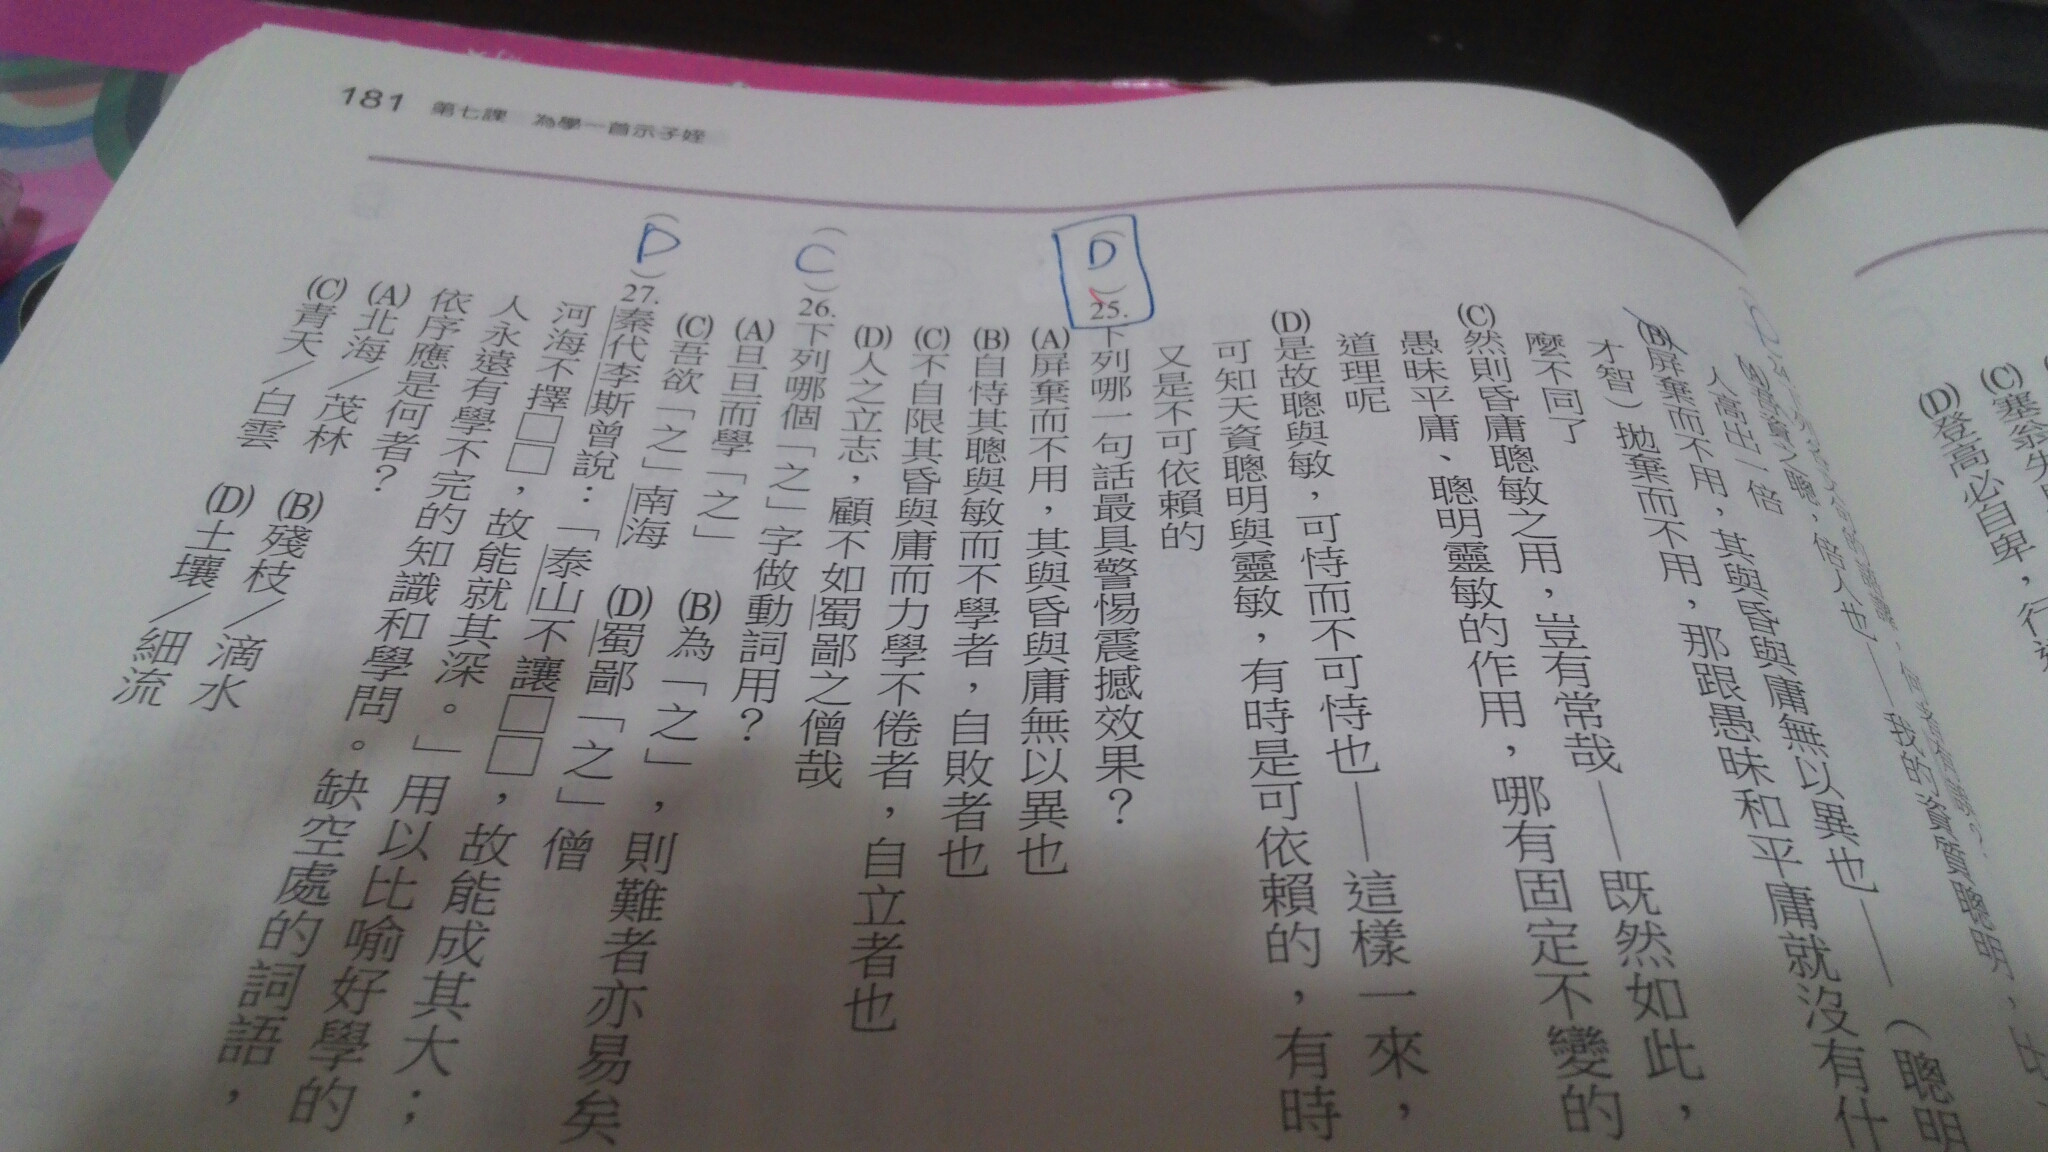 181 第七課 為學一首示子姪
(C)塞翁失
(D)登高必自卑，行
(A)吾資之聰，倍人也——我的資質聰明，比
人高出一倍
(B)屏棄而不用，其與昏與庸無以異也——（聰明
才智）拋棄而不用，那跟愚昧和平庸就沒有什
麼不同了
(C)然則昏庸聰敏之用，豈有常哉——既然如此，
愚昧平庸、聰明靈敏的作用，哪有固定不變的
道理呢
(D)是故聰與敏，可恃而不可恃也——這樣一來，
可知天資聰明與靈敏，有時是可依賴的，有時
又是不可依賴的
（D）25.下列哪一句話最具警惕震撼效果？
(A)屏棄而不用，其與昏與庸無以異也
(B)自恃其聰與敏而不學者，自敗者也
(C)不自限其昏與庸而力學不倦者，自立者也
(D)人之立志，顧不如蜀鄙之僧哉
（C）26.下列哪個「之」字做動詞用？
(A)旦旦而學「之」 (B)為「之」，則難者亦易矣
(C)吾欲「之」南海 (D)蜀鄙「之」僧
（D）27.秦代李斯曾說：「泰山不讓□□，故能成其大；
河海不擇□□，故能就其深。」用以比喻好學的
人永遠有學不完的知識和學問。缺空處的詞語，
依序應是何者？
(A)北海／茂林 (B)殘枝／滴水
(C)青天／白雲 (D)土壤／細流